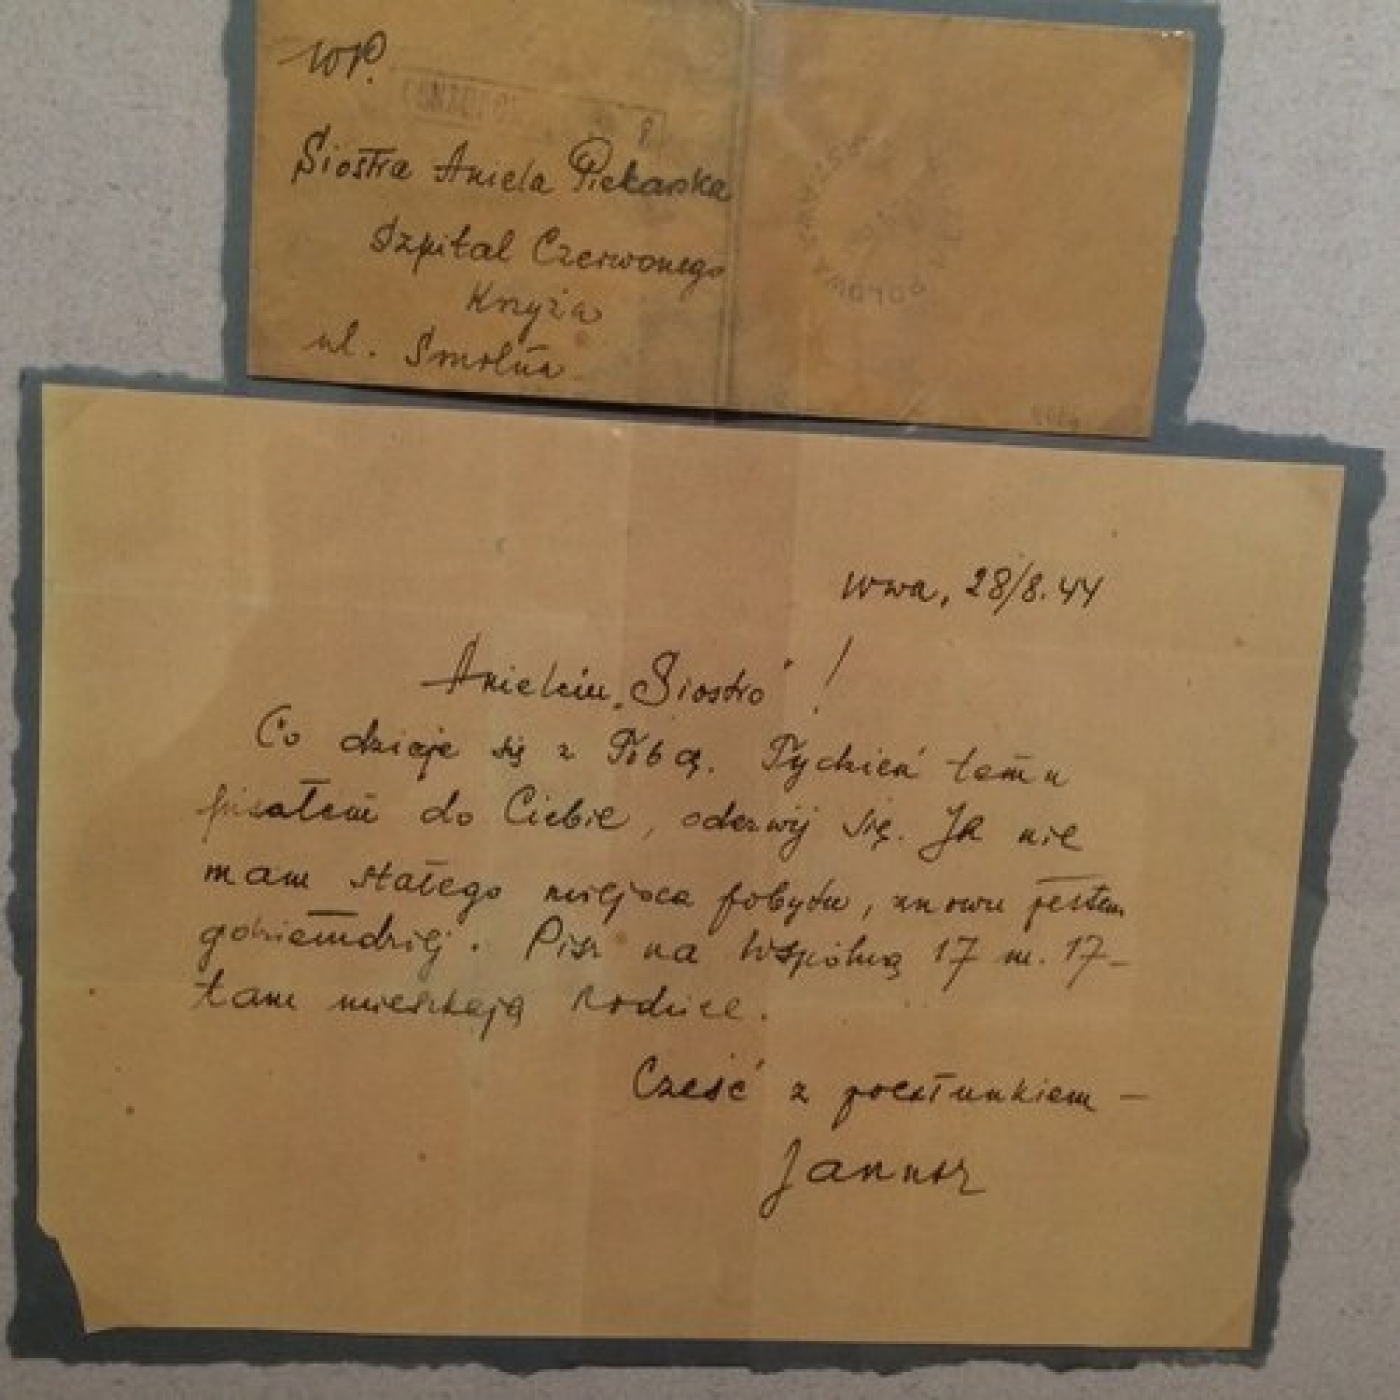 WP.
Siostra Aniela Piekarska
Szpital Czerwonego
Krzyża
ul. Smolna
Wwa, 28/8.44
Anielciu „Siostro" !
Co dzieje się z Tobą. Tydzień temu
pisałem do Ciebie, odezwij się. Ja nie
mam stałego miejsca pobytu, znowu jestem
gdzieindziej. Pisz na Wspólną 17 m. 17 –
tam mieszkają rodzice.
Cześć z pocałunkiem –
Janusz